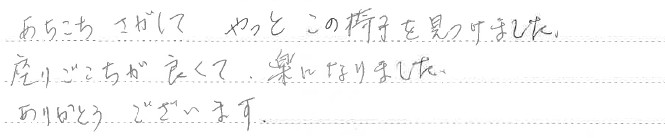 あちこち さがして やっと この椅子を見つけました。
座りごこちが良くて、楽になりました。
ありがとう ございます.